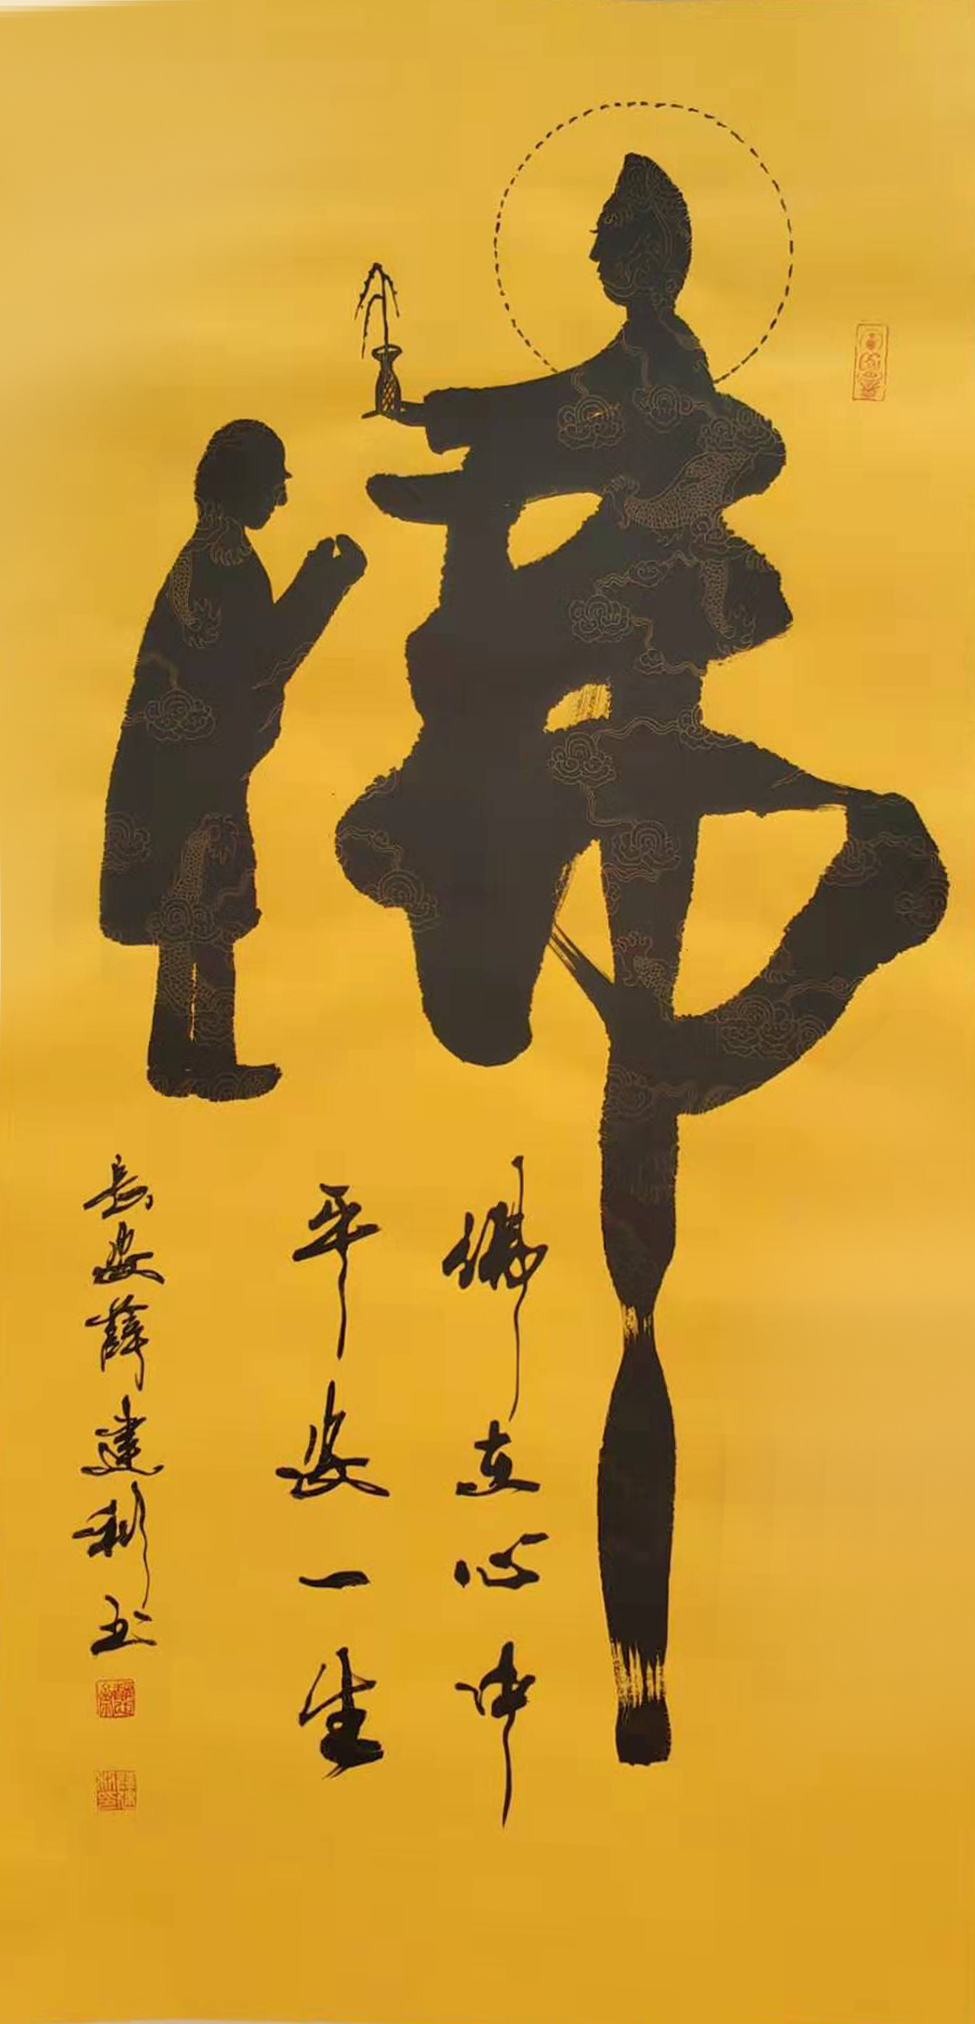 佛
佛在心中
平安一生
長安薛建利书